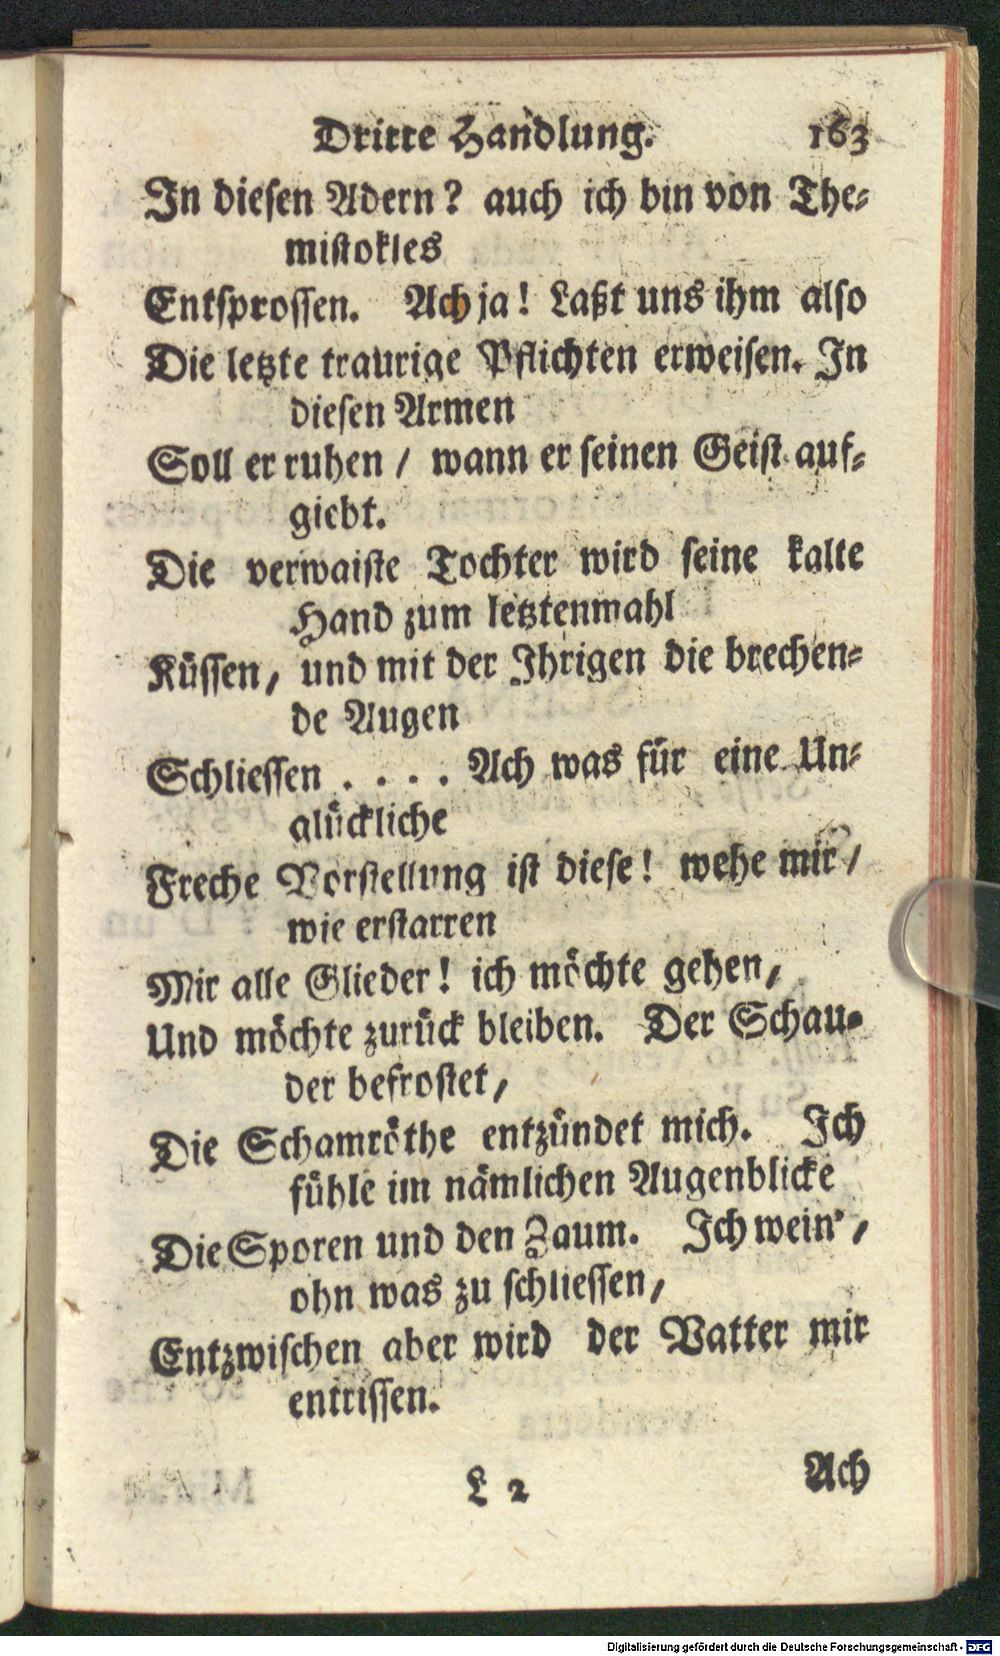 Dritte Handlung. 163
In diesen Adern? auch ich bin von The-
mistokles
Entsprossen. Ach ja! Laßt uns ihm also
Die letzte traurige Pflichten erweisen. In
diesen Armen
Soll er ruhen / wann er seinen Geist auf-
giebt.
Die verwaiste Tochter wird seine kalte
Hand zum letztenmahl
Küssen, und mit der Ihrigen die brechen-
de Augen
Schliessen . . . . Ach was für eine Un-
glückliche
Freche Vorstellung ist diese! wehe mir /
wie erstarren
Mir alle Glieder! ich möchte gehen,
Und möchte zurück bleiben. Der Schau-
der befrostet,
Die Schamröthe entzündet mich. Ich
fühle im nämlichen Augenblicke
Die Sporen und den Zaum. Ich wein',
ohn was zu schliessen,
Entzwischen aber wird der Vatter mir
entrissen.
L 2 Ach
Digitalisierung gefördert durch die Deutsche Forschungsgemeinschaft - DFG